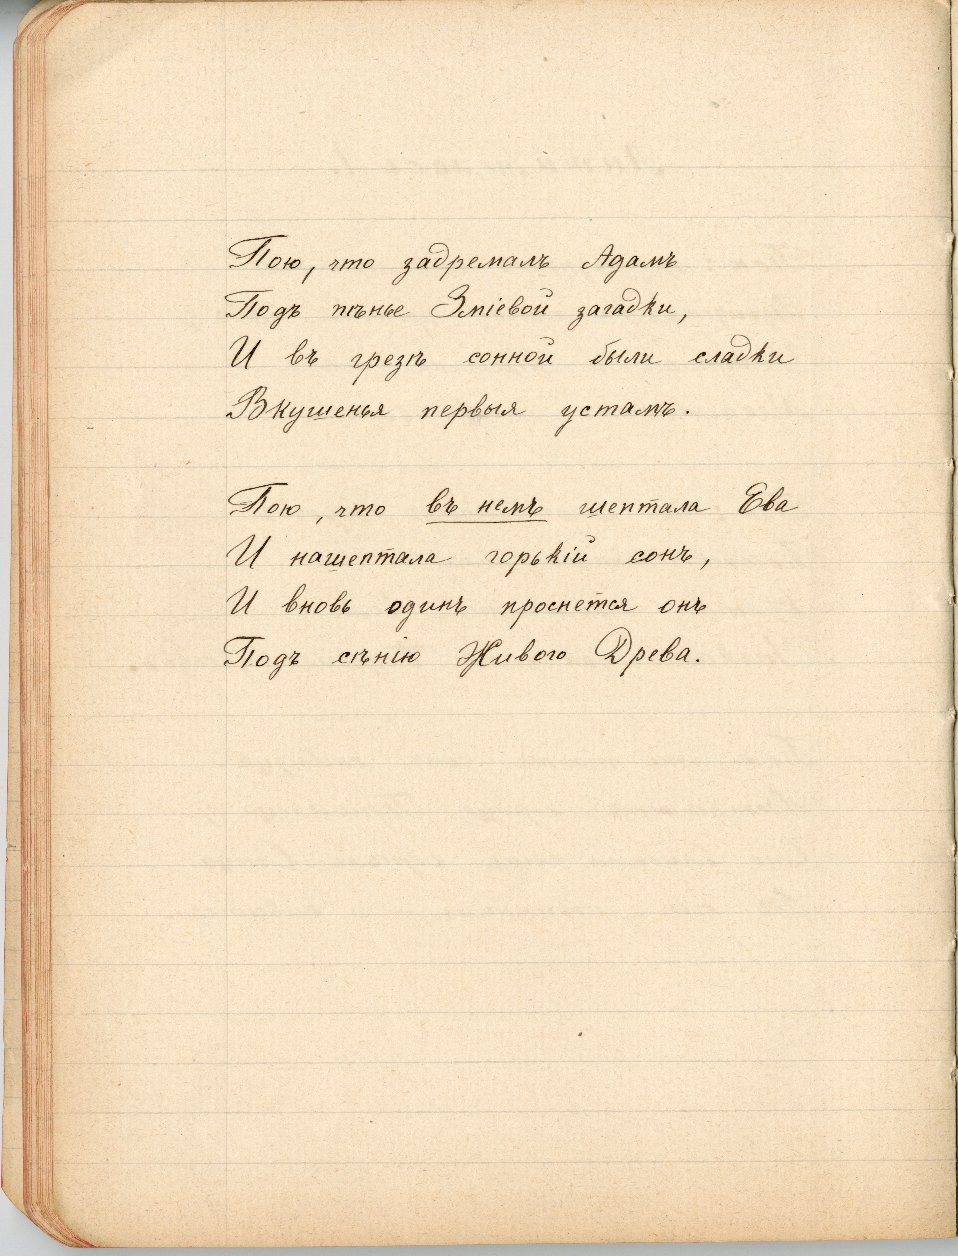 Пою, что задремалъ Адамъ
Подъ пѣнье Зміевой загадки,
И въ грезѣ сонной были сладки
Вкушенья первыя устамъ.
Пою, что въ немъ шептала Ева
И нашептала горькій сонъ,
И вновь одинъ проснется онъ
Подъ сѣнію Живого Древа.